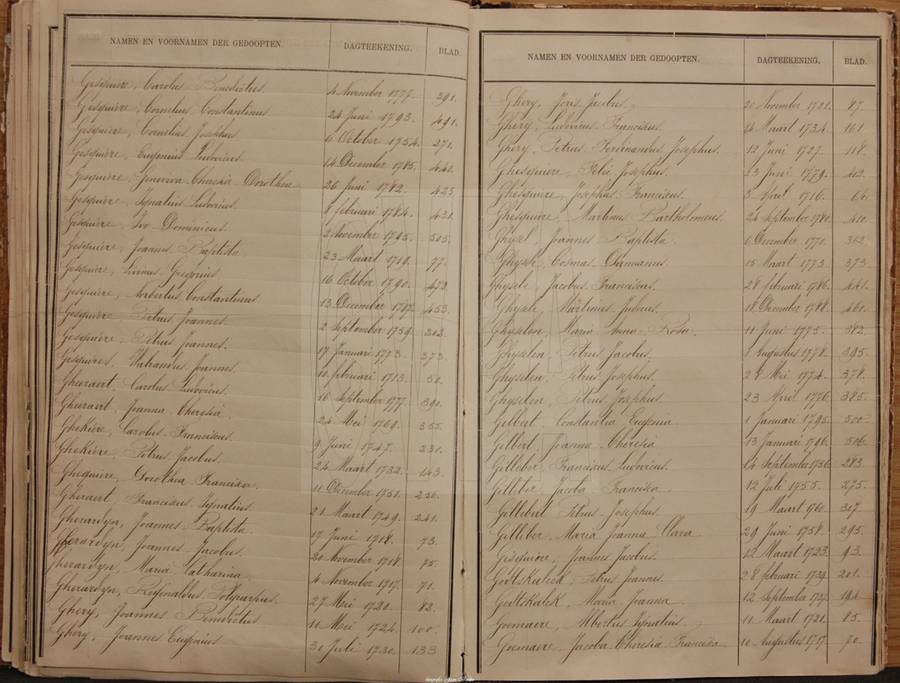 NAMEN EN VOORNAMEN DER GEDOOPTEN. DAGTEEKENING. BLAD.
Gesquiere, Carolus Benedictus. 4 November 1777. 391.
Gesquiere, Cornelius Constantinus 24 Juni 1793. 491.
Gesquiere, Cornelius Josephus 6 October 1754. 271.
Gesquiere, Eugenius Ludovicus 14 December 1785. 442.
Gesquiere, Genoveva Theresia Dorothea 26 Juni 1782. 423.
Gesquiere, Ignatius Ludovicus. 8 februari 1784. 431.
Gesquiere, Ivo Dominicus. 2 November 1795. 505.
Gesquiere, Joannes Baptista 23 Maart 1719. 77.
Gesquiere, Livinus Gregorius 16 October 1790. 472.
Gesquiere, Norbertus Constantinus 13 December 1787. 453.
Gesquiere, Petrus Joannes. 2 September 1759. 302.
Gesquiere, Petrus Joannes. 17 Januari 1773. 373.
Gesquiere, Joannes 10 februari 1713. 50.
Gheeraert, Carolus Ludovicus. 16 September 1777. 390.
Gheeraert, Joanna Theresia 24 Mei 1769. 355.
Ghekiere, Carolus Franciscus 9 Juni 1747. 231.
Ghekiere, Petrus Jacobus. 24 Maart 1732. 143.
Ghequiere, Dorothea Francisca. 11 December 1751. 256.
Gheraert, Franciscus Ignatius. 21 Maart 1749. 241.
Gherardyn, Joannes Baptista 17 Juni 1718. 73.
Gherardyn, Joannes Jacobus. 30 November 1718. 75.
Gherardyn, Maria Catharina 4 November 1717. 71.
Gherardyn, Reginaldus Polycarpus. 27 Mei 1720. 82.
Ghery, Joannes Benedictus 11 Mei 1724. 100.
Ghery, Joannes Eugenius 31 Juli 1730. 133
NAMEN EN VOORNAMEN DER GEDOOPTEN. DAGTEEKENING. BLAD.
Ghery, Joris Jacobus. 20 November 1721. 87.
Ghery, Ludovicus Franciscus. 14 Maart 1734. 161.
Ghery, Petrus Ferdinandus Josephus. 12 Juni 1727. 118.
Ghesquiere, Felix Josephus. 23 Juni 1779. 402.
Ghesquiere, Josephus Franciscus. 3 April 1716. 64.
Ghesquiere, Martinus Bartholomeus. 24 September 1780. 410.
Ghysel, Joannes Baptista 6 December 1770. 362.
Ghysele, Cosmas Damianus. 15 Maart 1773. 373.
Ghysele, Jacobus Franciscus. 28 februari 1786. 441.
Ghysele, Martinus 18 December 1788. 460.
Ghyselen, Maria Anna Rosa. 11 Juni 1775. 382.
Ghyselen, Petrus Jacobus. 1 Augustus 1778. 395.
Ghyselen, Petrus Josephus. 27 Mei 1774. 378.
Ghyselen, Petrus Josephus. 23 April 1776. 385.
Gilbert, Constantia Eugenia. 1 Januari 1795. 500.
Gilbert, Joanna Theresia 13 Januari 1796. 506.
Gilleber, Franciscus Ludovicus. 14 September 1756. 283.
Gilleber, Jacoba Francisca. 12 Juli 1755. 275.
Gillebert, Petrus Josephus. 19 Maart 1760. 307.
Gilleber, Maria Joanna Clara. 29 Juni 1758. 295.
Gisquiere, Joannes Jacobus. 12 Maart 1723. 93.
Godtskalck, Petrus Joannes. 28 februari 201.
Godtskalck, Maria Joanna. 12 September 1737.
Goemaere, Albertus Ignatius. 11 Maart 1721. 85.
Goemaere, Jacoba Theresia Francisca 10 Augustus 1717. 70.